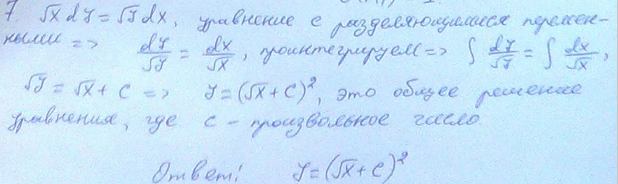 7. √x dy = √y dx, уравнение с разделяющимися перемен-
ными => dy/√y = dx/√x, проинтегрируем => ∫ dy/√y = ∫ dx/√x,
√y = √x + C => y = (√x + C)², это общее решение
уравнения, где C – произвольное число
Ответ: y = (√x + C)²